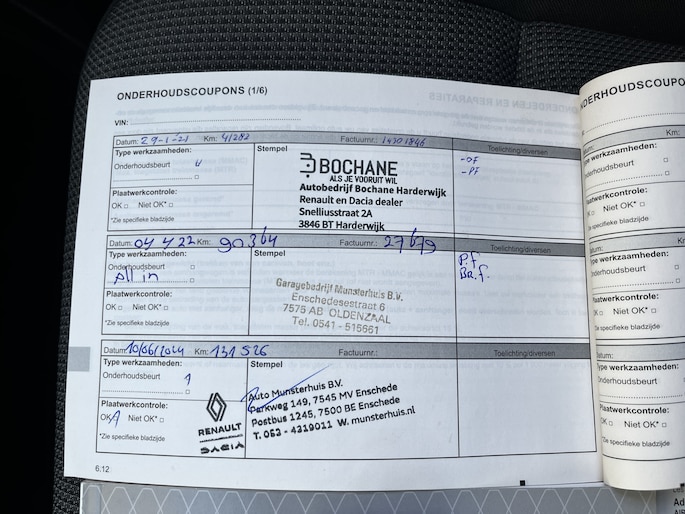 ONDERHOUDSCOUPONS (1/6)
VIN:
Datum: 29-1-21 Km: 41282 Factuurnr.: 14301846
Type werkzaamheden: Stempel Toelichting/diversen
Onderhoudsbeurt
BOCHANE
ALS JE VOORUIT WIL
Autobedrijf Bochane Harderwijk
Renault en Dacia dealer
Snelliusstraat 2A
3846 BT Harderwijk
- OF
- PF
Plaatwerkcontrole:
OK Niet OK*
*Zie specifieke bladzijde
Datum: 04 4 22 Km: 90364 Factuurnr.: 27679
Type werkzaamheden: Stempel Toelichting/diversen
Onderhoudsbeurt
All in
Garagebedrijf Munsterhuis B.V.
Enschedesestraat 6
7575 AB OLDENZAAL
Tel. 0541 - 515661
P.f
Br.f.
Plaatwerkcontrole:
OK Niet OK*
*Zie specifieke bladzijde
Datum: 10/06/2024 Km: 131526 Factuurnr.:
Type werkzaamheden: Stempel Toelichting/diversen
Onderhoudsbeurt 1
RENAULT
DACIA
Auto Munsterhuis B.V.
Parkweg 149, 7545 MV Enschede
Postbus 1245, 7500 BE Enschede
T. 053 - 4319011 W. munsterhuis.nl
Plaatwerkcontrole:
OK Niet OK*
*Zie specifieke bladzijde
6.12
Km:
Type werkzaamheden:
Onderhoudsbeurt
Plaatwerkcontrole:
Niet OK*
*Zie specifieke bladzijde
Datum:
Type werkzaamheden:
Onderhoudsbeurt
Plaatwerkcontrole:
Niet OK*
*Zie specifieke bladzijde
Datum:
Type werkzaamheden:
Onderhoudsbeurt
Plaatwerkcontrole:
OK Niet OK*
*Zie specifieke bladzijde